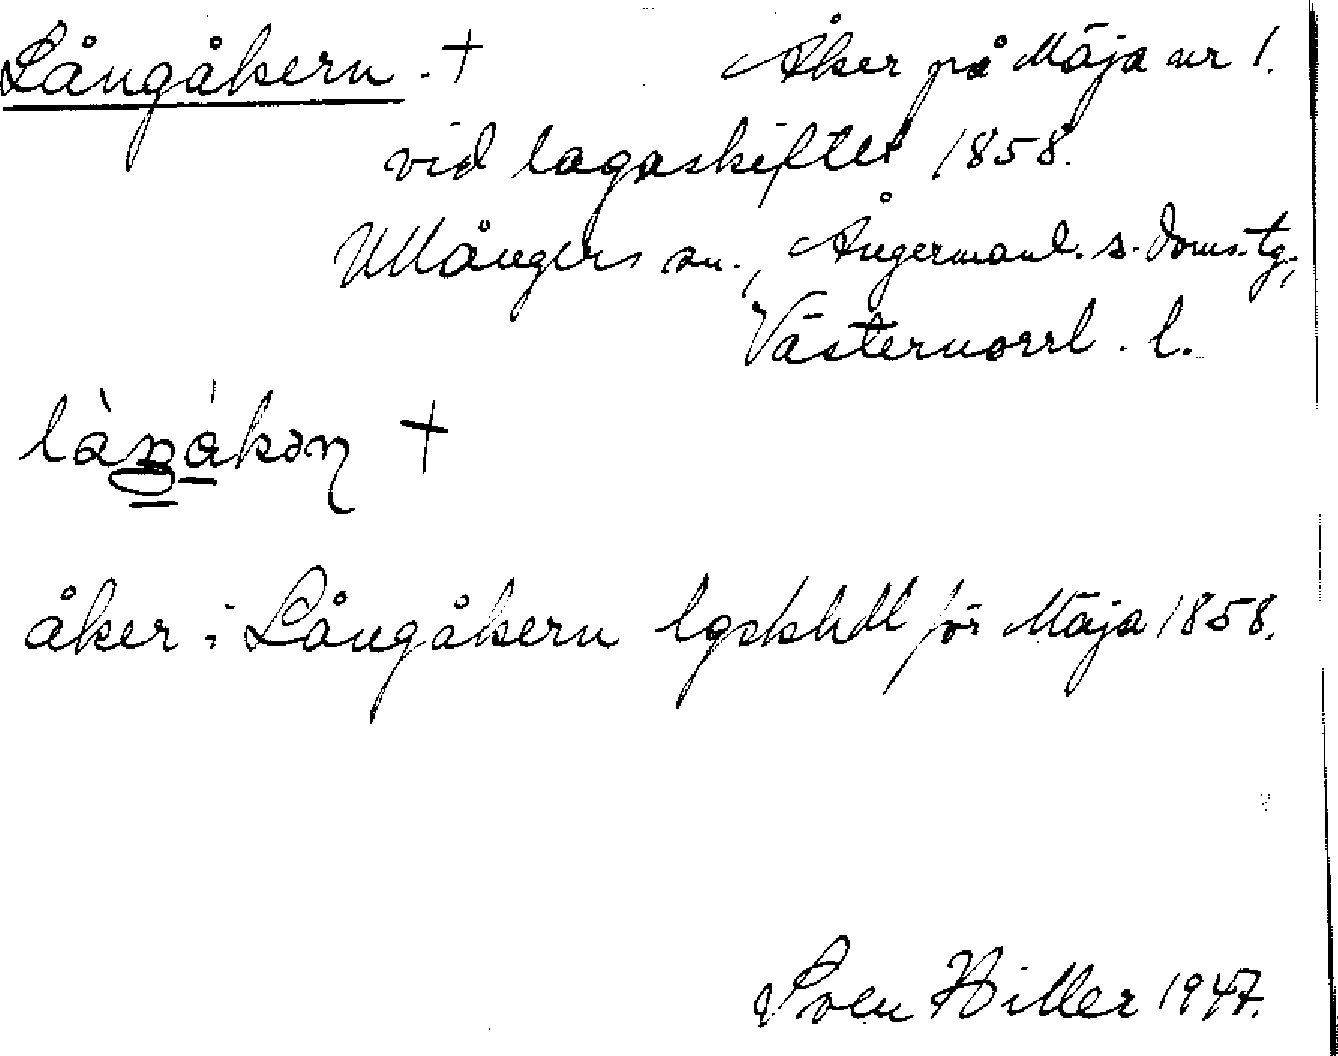 Långåkern. + Åker på Mäja nr 1.
vid lagaskiftet 1858.
Ullångers sn., Ångermanl. s. doms.tg;
Västernorrl. l.
åker i Långåkern lgskhdl för Mäja 1858.
Sven Hiller 1947.